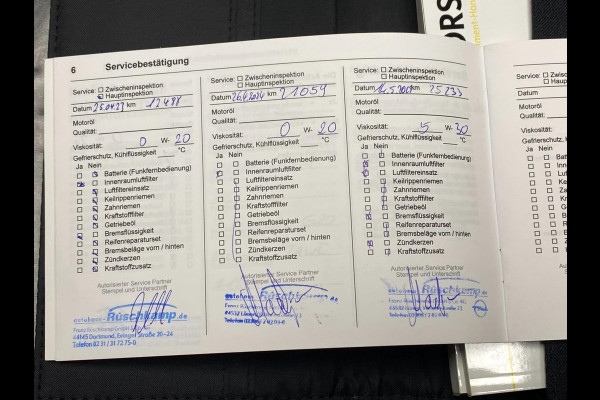 6 Servicebestätigung
Service: Zwischeninspektion
Hauptinspektion
Datum 25.04.23 km 12488
Motoröl
Qualität:
Viskosität: 0 W- 20
Gefrierschutz, Kühlflüssigkeit °C
Ja Nein
Batterie (Funkfernbedienung)
Innenraumluftfilter
Luftfiltereinsatz
Keilrippenriemen
Zahnriemen
Kraftstofffilter
Getriebeöl
Bremsflüssigkeit
Reifenreparaturset
Bremsbeläge vorn / hinten
Zündkerzen
Kraftstoffzusatz
Autorisierter Service Partner
Stempel und Unterschrift
autohaus Rüschkamp.de
44145 Dortmund, Evinger Straße 20-24
Telefon 02 31 / 31 72 75-0
Service: Zwischeninspektion
Hauptinspektion
Datum 26.4.2024 km 21059
Motoröl
Qualität:
Viskosität: 0 W- 20
Gefrierschutz, Kühlflüssigkeit °C
Ja Nein
Batterie (Funkfernbedienung)
Innenraumluftfilter
Luftfiltereinsatz
Keilrippenriemen
Zahnriemen
Kraftstofffilter
Getriebeöl
Bremsflüssigkeit
Reifenreparaturset
Bremsbeläge vorn / hinten
Zündkerzen
Kraftstoffzusatz
Autorisierter Service Partner
Stempel und Unterschrift
autohaus
Service: Zwischeninspektion
Hauptinspektion
Datum km 25733
Motoröl
Qualität:
Viskosität: 5 W- 30
Gefrierschutz, Kühlflüssigkeit °C
Ja Nein
Batterie (Funkfernbedienung)
Innenraumluftfilter
Luftfiltereinsatz
Keilrippenriemen
Zahnriemen
Kraftstofffilter
Getriebeöl
Bremsflüssigkeit
Reifenreparaturset
Bremsbeläge vorn / hinten
Zündkerzen
Kraftstoffzusatz
Autorisierter Service Partner
Stempel und Unterschrift
Service:
Datum
Motoröl
Qualität:
Viskosität:
Gefrierschutz
Ja Nein